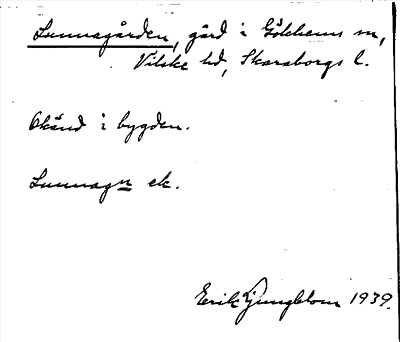 Sunnagården, gård i Gökhems sn,
Vilske hd, Skaraborgs l.
Okänd i bygden.
Sunnagn ek.
Erik Ljungblom 1939.